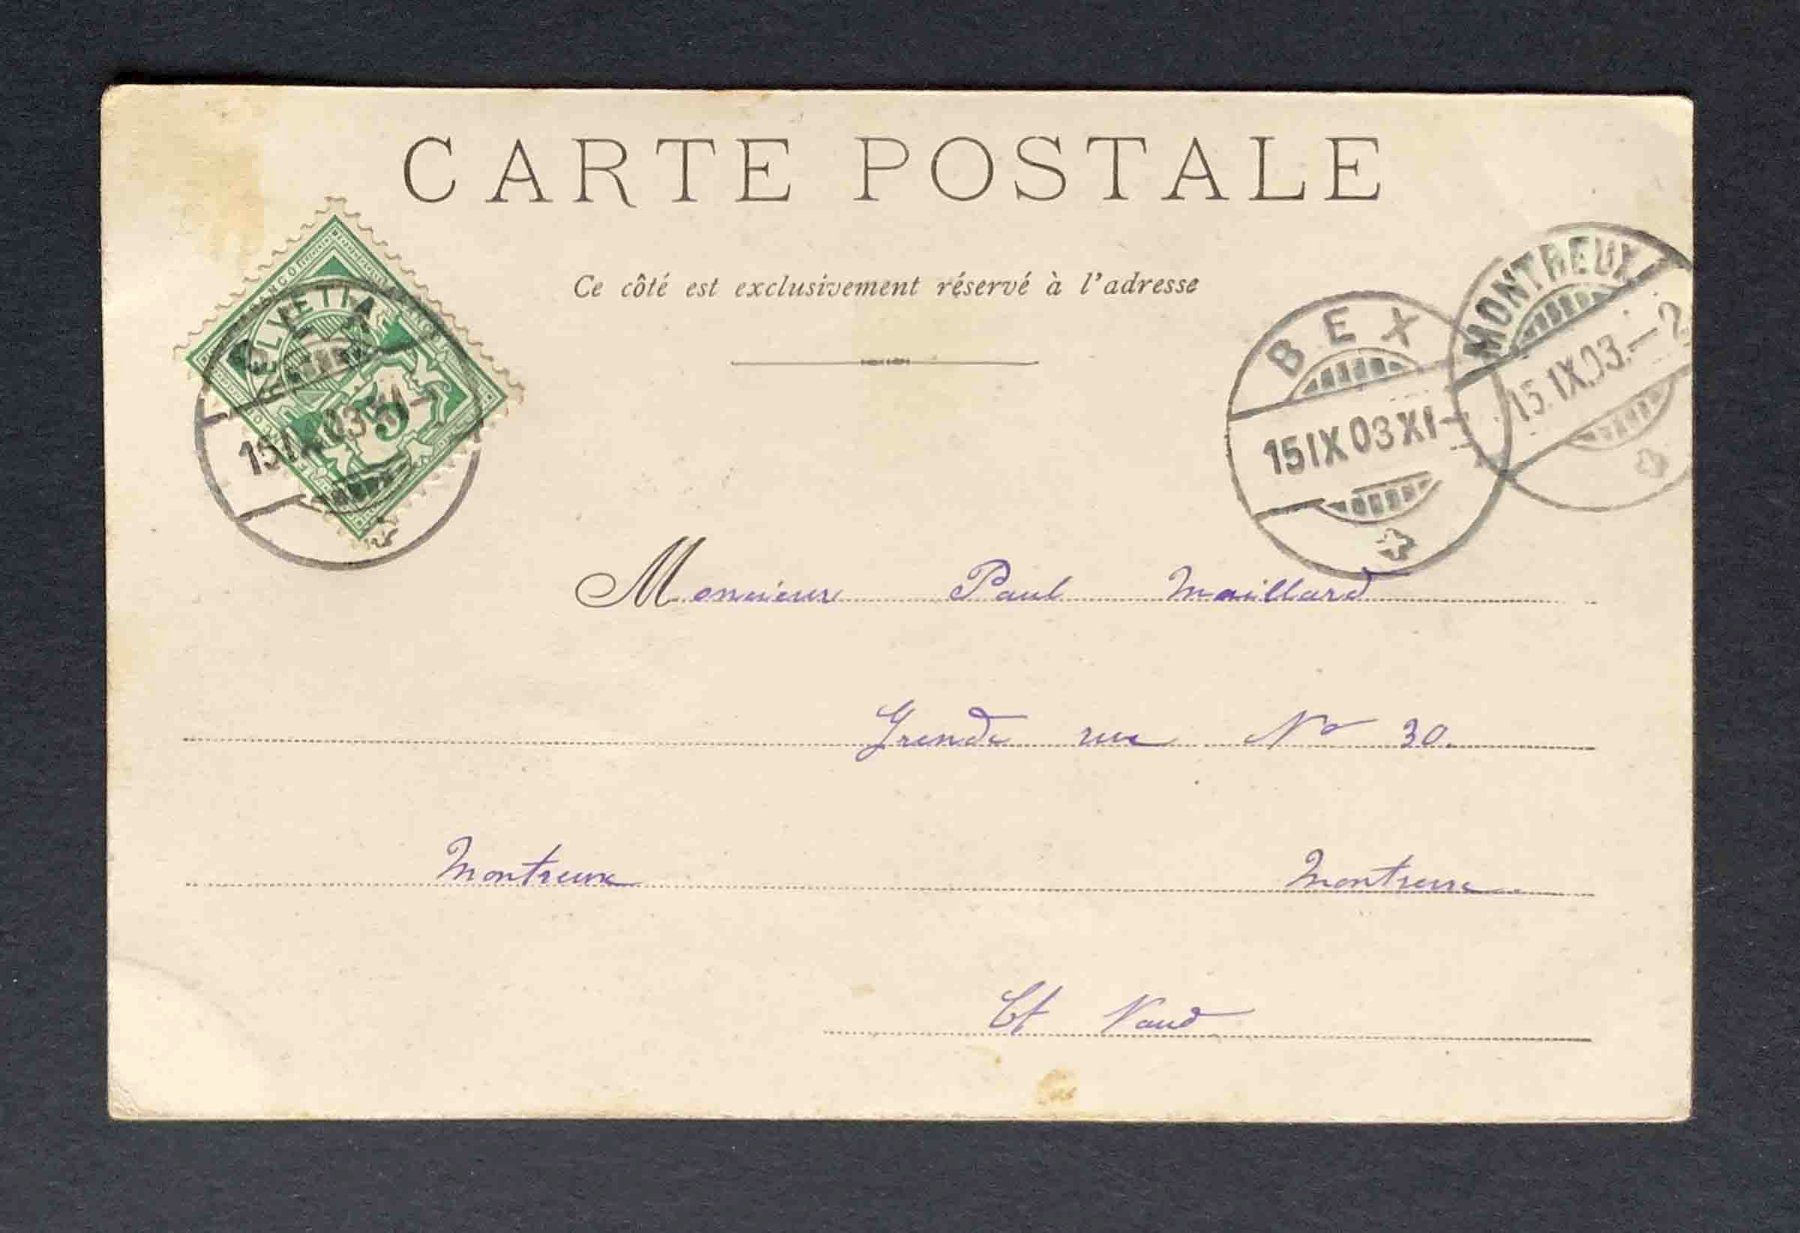 CARTE POSTALE
Ce côté est exclusivement réservé à l'adresse
FRANCO
HELVETIA
5
15 IX 03 XI-
BEX
15 IX 03 XI-
MONTREUX
15. IX. 03. - 2
Monsieur Paul Maillard
Grande rue No 30.
Montreux Montreux
Ct Vaud